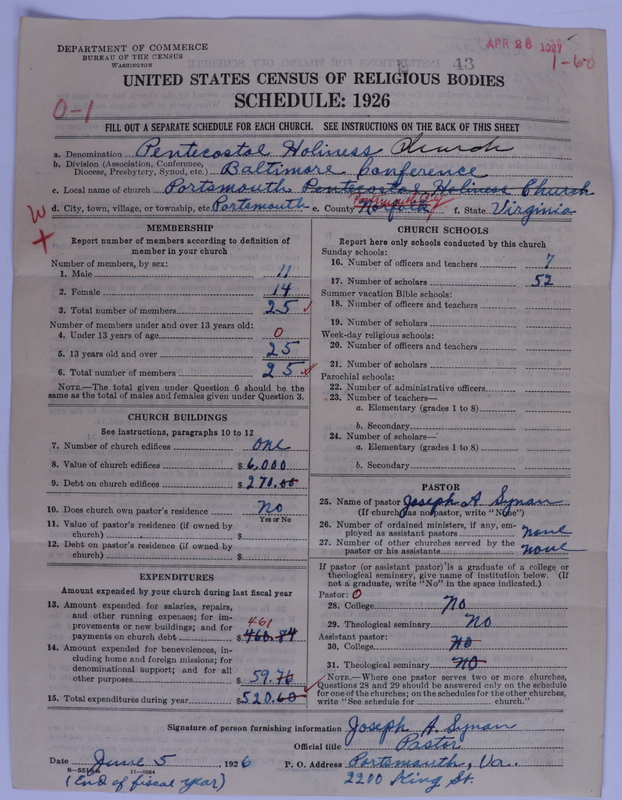 APR 26 1927
43
1-60
DEPARTMENT OF COMMERCE
BUREAU OF THE CENSUS
WASHINGTON
UNITED STATES CENSUS OF RELIGIOUS BODIES
SCHEDULE: 1926
0-1
FILL OUT A SEPARATE SCHEDULE FOR EACH CHURCH. SEE INSTRUCTIONS ON THE BACK OF THIS SHEET
a. Denomination Pentecostal Holiness Church
b. Division (Association, Conference, Diocese, Presbytery, Synod, etc.) Baltimore Conference
c. Local name of church Portsmouth Pentecostal Holiness Church
d. City, town, village, or township, etc. Portsmouth e. County Norfolk Portsmouth City f. State Virginia
W
+
MEMBERSHIP
Report number of members according to definition of
member in your church
Number of members, by sex:
1. Male 11
2. Female 14
3. Total number of members 25
Number of members under and over 13 years old:
4. Under 13 years of age 0
5. 13 years old and over 25
6. Total number of members 25
NOTE.—The total given under Question 6 should be the
same as the total of males and females given under Question 3.
CHURCH BUILDINGS
See instructions, paragraphs 10 to 12
7. Number of church edifices one
8. Value of church edifices $ 6,000
9. Debt on church edifices $ 270.00
10. Does church own pastor's residence No
Yes or No
11. Value of pastor's residence (if owned by
church) $
12. Debt on pastor's residence (if owned by
church) $
EXPENDITURES
Amount expended by your church during last fiscal year
13. Amount expended for salaries, repairs,
and other running expenses; for im-
provements or new buildings; and for 461
payments on church debt $ 460.84
14. Amount expended for benevolences, in-
cluding home and foreign missions; for
denominational support; and for all
other purposes $ 59.76
15. Total expenditures during year $ 520.60
CHURCH SCHOOLS
Report here only schools conducted by this church
Sunday schools:
16. Number of officers and teachers 7
17. Number of scholars 52
Summer vacation Bible schools:
18. Number of officers and teachers
19. Number of scholars
Week-day religious schools:
20. Number of officers and teachers
21. Number of scholars
Parochial schools:
22. Number of administrative officers
23. Number of teachers—
a. Elementary (grades 1 to 8)
b. Secondary
24. Number of scholars—
a. Elementary (grades 1 to 8)
b. Secondary
PASTOR
25. Name of pastor Joseph A Synan
(If church has no pastor, write "None")
26. Number of ordained ministers, if any, em-
ployed as assistant pastors none
27. Number of other churches served by the
pastor or his assistants none
If pastor (or assistant pastor) is a graduate of a college or
theological seminary, give name of institution below. (If
not a graduate, write "No" in the space indicated.)
Pastor: 0
28. College No
29. Theological seminary No
Assistant pastor:
30. College No
31. Theological seminary No
NOTE.—Where one pastor serves two or more churches,
Questions 28 and 29 should be answered only on the schedule
for one of the churches; on the schedules for the other churches,
write "See schedule for church."
Signature of person furnishing information Joseph A. Synan
Official title Pastor
Date June 5, 1926 P. O. Address Portsmouth, Va.
11—9054
(End of fiscal year) 2200 King St.